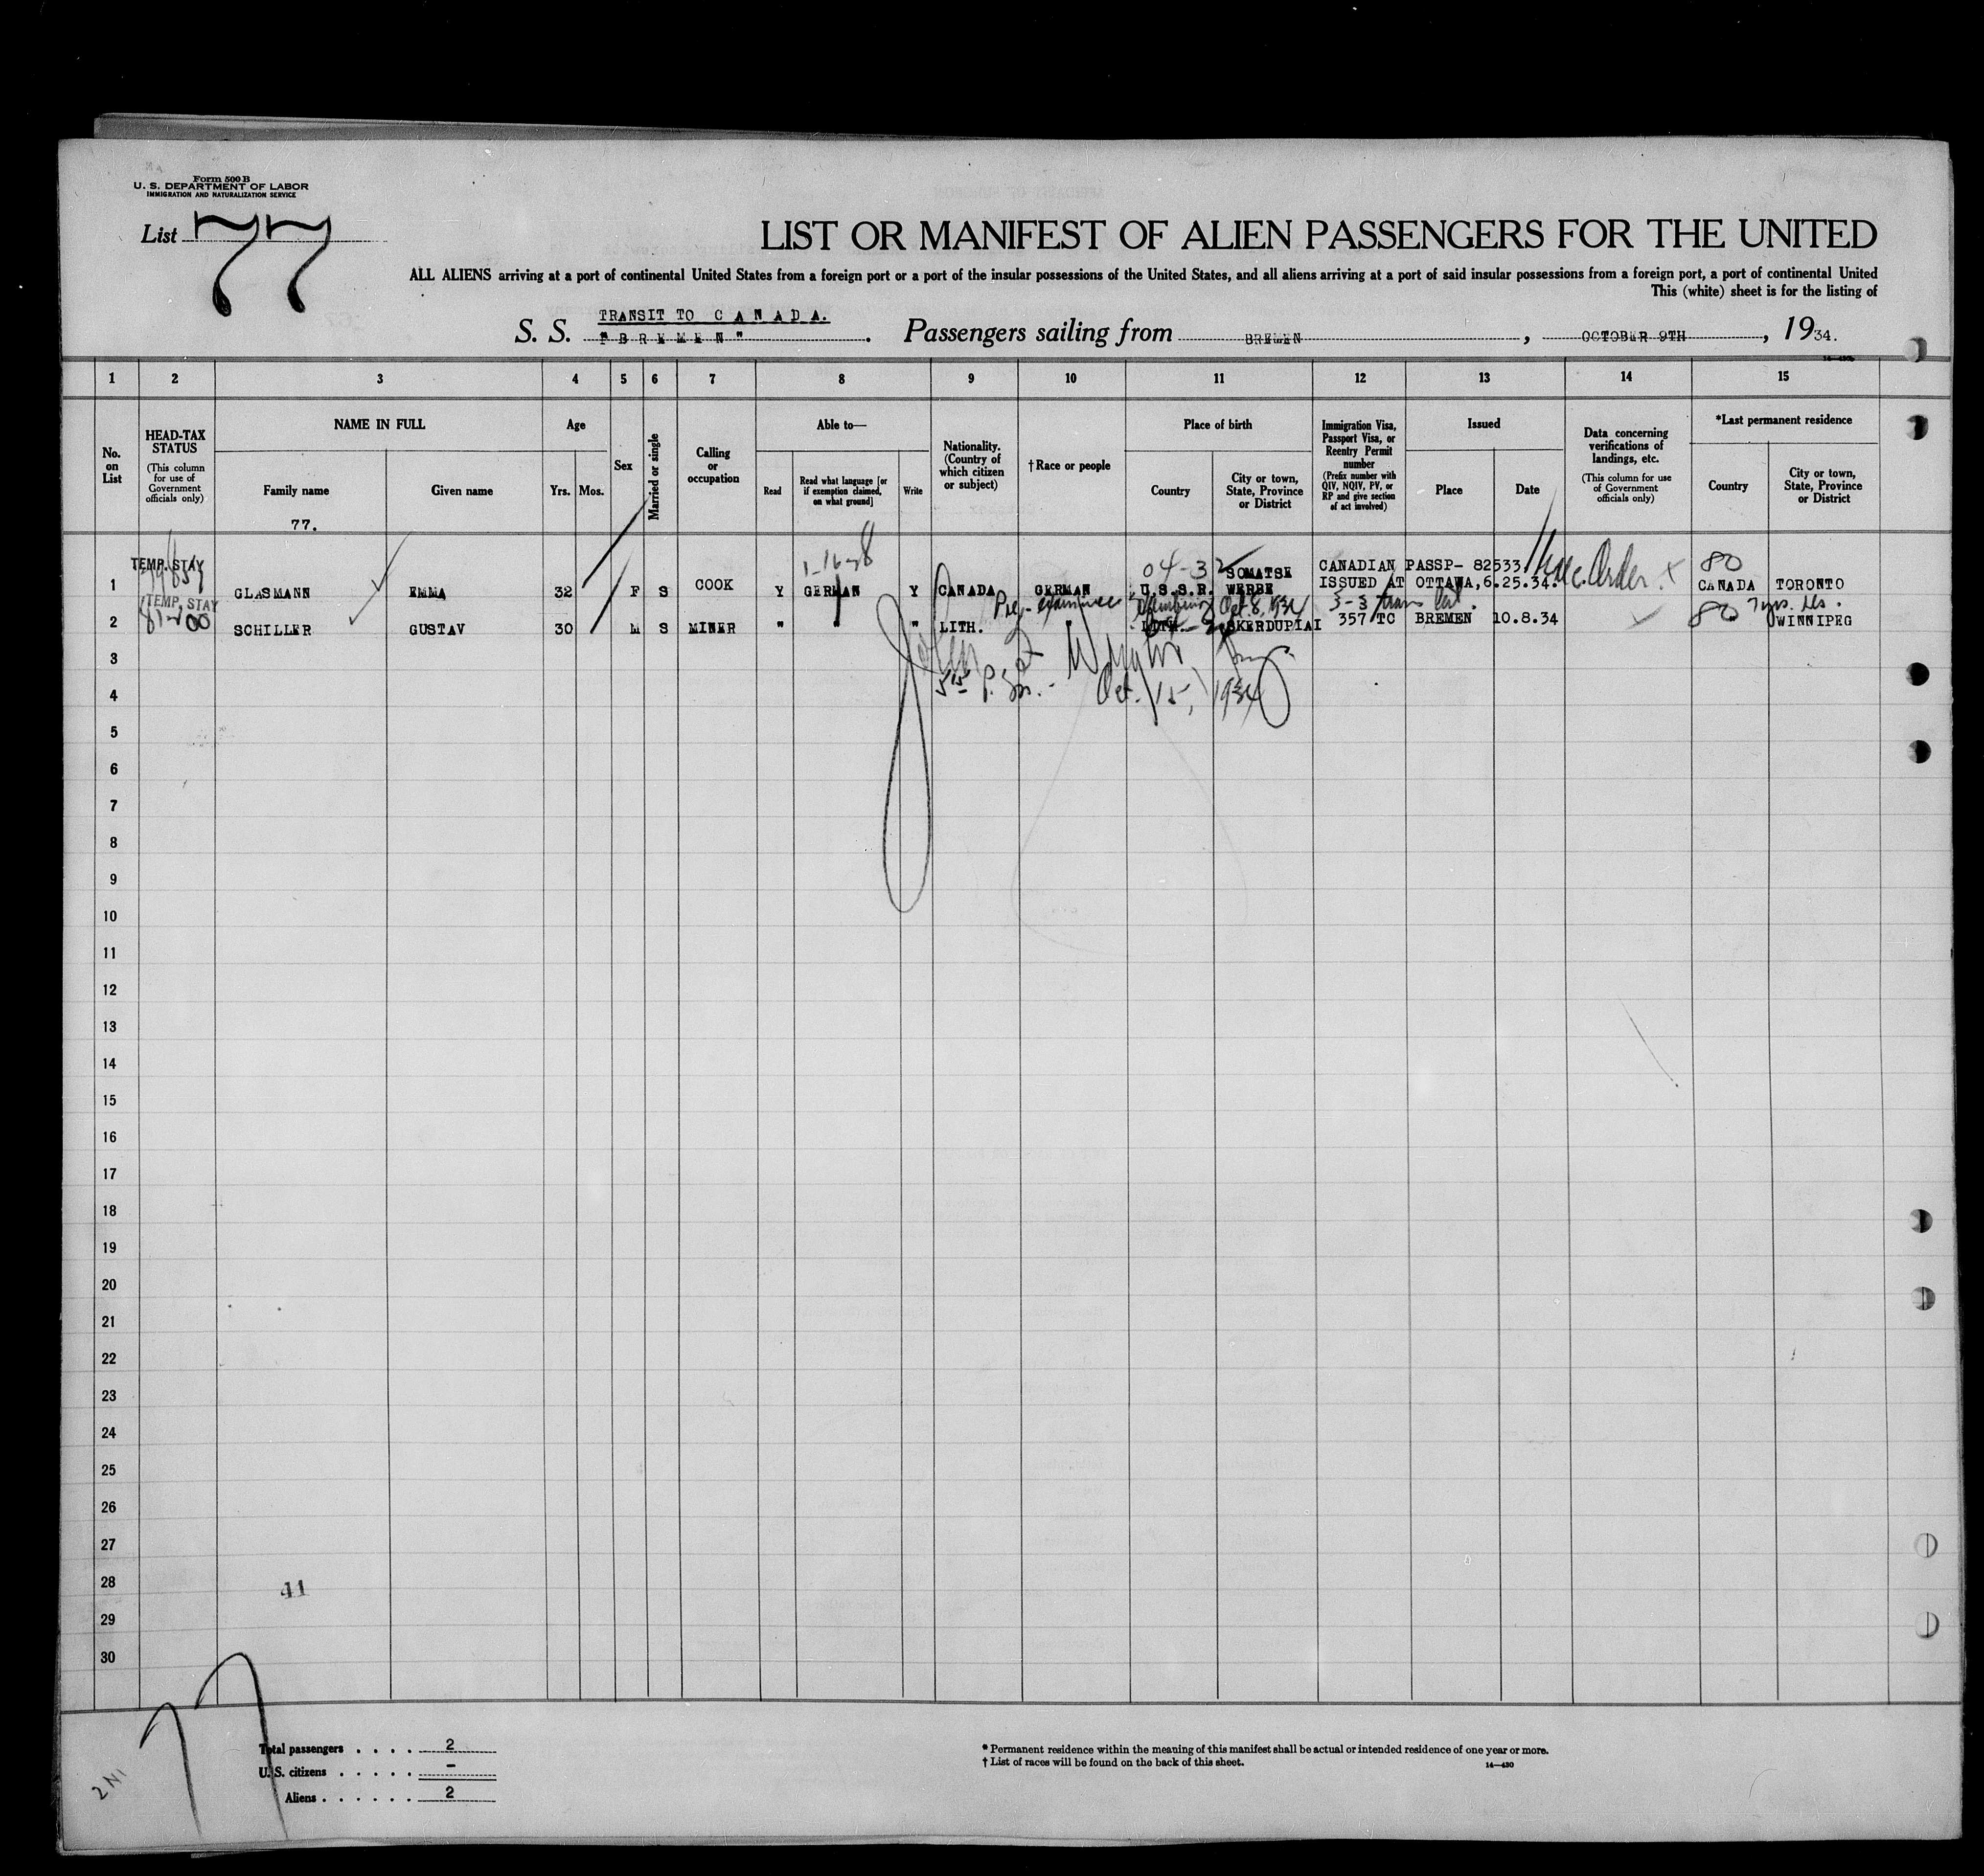 Form 500 B
U. S. DEPARTMENT OF LABOR
IMMIGRATION AND NATURALIZATION SERVICE
List 77
LIST OR MANIFEST OF ALIEN PASSENGERS FOR THE UNITED
ALL ALIENS arriving at a port of continental United States from a foreign port or a port of the insular possessions of the United States, and all aliens arriving at a port of said insular possessions from a foreign port, a port of continental United
This (white) sheet is for the listing of
TRANSIT TO CANADA.
S. S. "BREMEN". Passengers sailing from BREMEN, OCTOBER 9TH, 1934.
1 2 3 4 5 6 7 8 9 10 11 12 13 14 15
No. on List
HEAD-TAX STATUS
(This column for use of Government officials only)
NAME IN FULL
Family name
Given name
77.
Age
Yrs. Mos.
Sex
Married or single
Calling or occupation
Able to—
Read
Read what language [or if exemption claimed, on what ground]
Write
Nationality. (Country of which citizen or subject)
†Race or people
Place of birth
Country
City or town, State, Province or District
Immigration Visa, Passport Visa, or Reentry Permit number
(Prefix number with QIV, NQIV, PV, or RP and give section of act involved)
Issued
Place
Date
Data concerning verifications of landings, etc.
(This column for use of Government officials only)
*Last permanent residence
Country
City or town, State, Province or District
TEMP. STAY
04-3
SOMATSE
CANADIAN PASSP- 82533
Exec. Order x
80
1 GLASMANN EMMA 32 F S COOK Y GERMAN Y CANADA GERMAN U.S.S.R. WERBE ISSUED AT OTTAWA,6.25.34. CANADA TORONTO
TEMP. STAY
Pre-examined Oct. 8, 1934
3-3
80 7 yrs. res.
2 SCHILLER GUSTAV 30 M S MINER " " " LITH. " LITH. SKERDUPIAI 357 TC BREMEN 10.8.34 WINNIPEG
3
5 15 P. m. - Oct. 15, 1934
4
5
6
7
8
9
10
11
12
13
14
15
16
17
18
19
20
21
22
23
24
25
26
27
28 41
29
30
77
2 NI
Total passengers . . . . 2
U. S. citizens . . . . . -
Aliens . . . . . . 2
* Permanent residence within the meaning of this manifest shall be actual or intended residence of one year or more.
† List of races will be found on the back of this sheet.
14—430